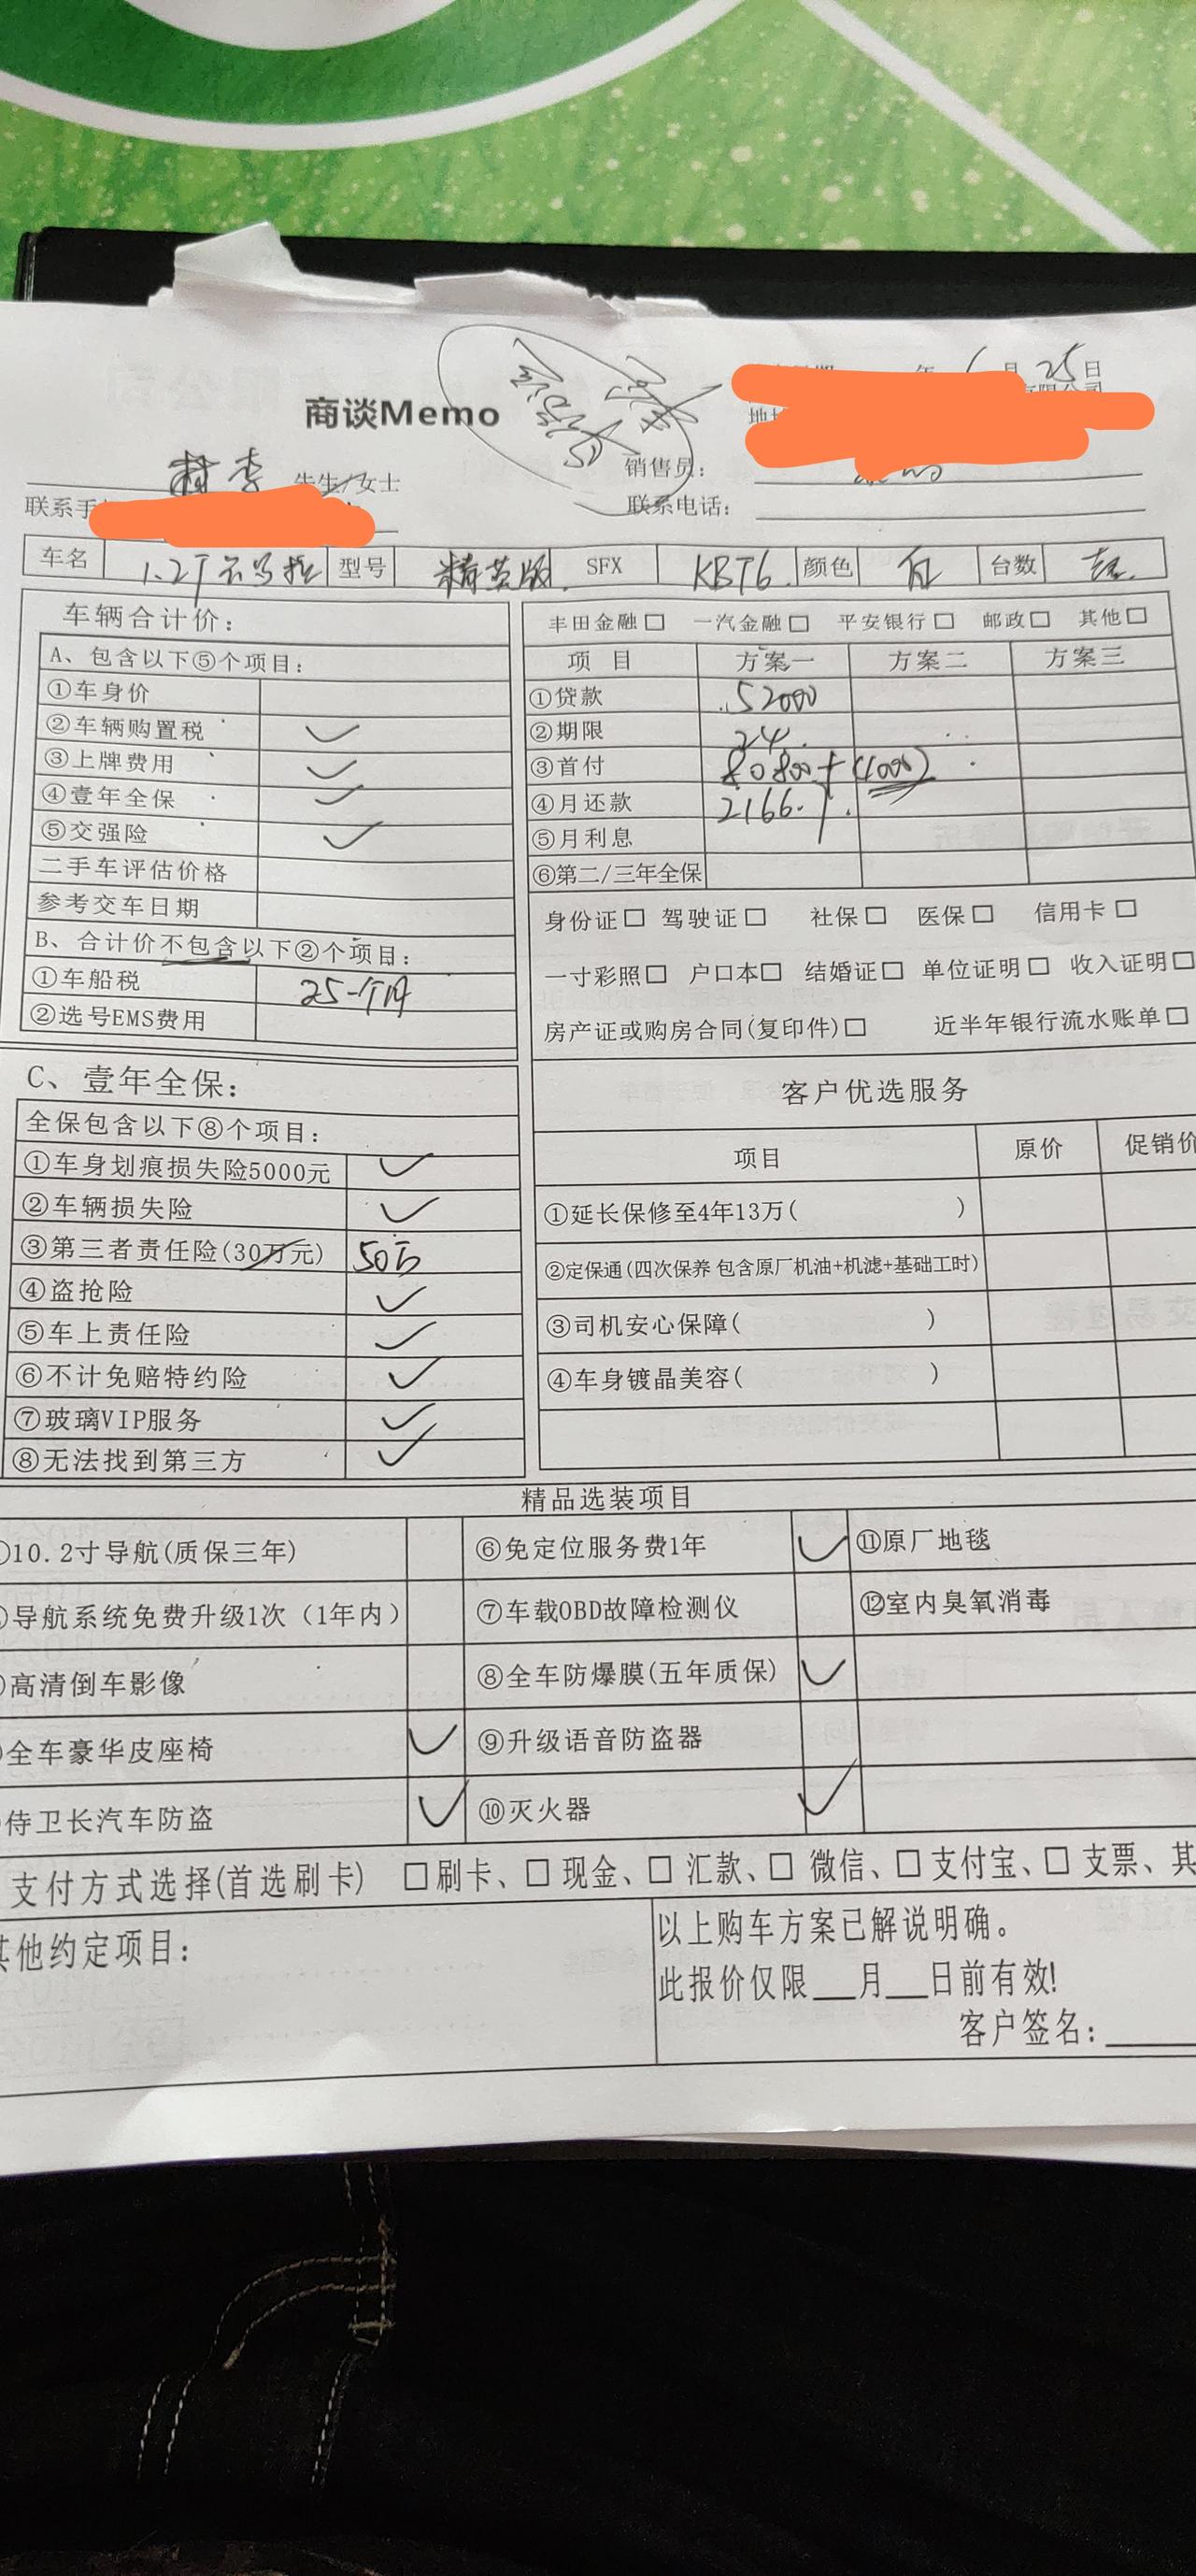 年6月25日
商谈Memo
地址
销售员：
先生/女士
联系手
联系电话：
车名 1.2T卡罗拉 型号 精英版 SFX KBT6 颜色 台数
车辆合计价：
A、包含以下⑤个项目：
①车身价
②车辆购置税 ✓
③上牌费用 ✓
④壹年全保 ✓
⑤交强险 ✓
二手车评估价格
参考交车日期
B、合计价不包含以下②个项目：
①车船税 25一个月
②选号EMS费用
丰田金融□ 一汽金融□ 平安银行□ 邮政□ 其他□
项 目 方案一 方案二 方案三
①贷款 52000
②期限 24
③首付 80800+(1000)
④月还款 2166.7
⑤月利息
⑥第二/三年全保
身份证□ 驾驶证□ 社保□ 医保□ 信用卡□
一寸彩照□ 户口本□ 结婚证□ 单位证明□ 收入证明□
房产证或购房合同(复印件)□ 近半年银行流水账单□
C、壹年全保：
全保包含以下⑧个项目：
①车身划痕损失险5000元 ✓
②车辆损失险 ✓
③第三者责任险(30万元) 50万
④盗抢险 ✓
⑤车上责任险 ✓
⑥不计免赔特约险 ✓
⑦玻璃VIP服务 ✓
⑧无法找到第三方 ✓
客户优选服务
项目 原价 促销价
①延长保修至4年13万( )
②定保通(四次保养 包含原厂机油+机滤+基础工时)
③司机安心保障( )
④车身镀晶美容( )
精品选装项目
10.2寸导航(质保三年) ⑥免定位服务费1年 ✓ ⑪原厂地毯
导航系统免费升级1次（1年内） ⑦车载OBD故障检测仪 ⑫室内臭氧消毒
高清倒车影像 ⑧全车防爆膜(五年质保) ✓
全车豪华皮座椅 ✓ ⑨升级语音防盗器
侍卫长汽车防盗 ✓ ⑩灭火器 ✓
支付方式选择(首选刷卡) □刷卡、□现金、□汇款、□微信、□支付宝、□支票、其
其他约定项目：
以上购车方案已解说明确。
此报价仅限__月__日前有效！
客户签名：